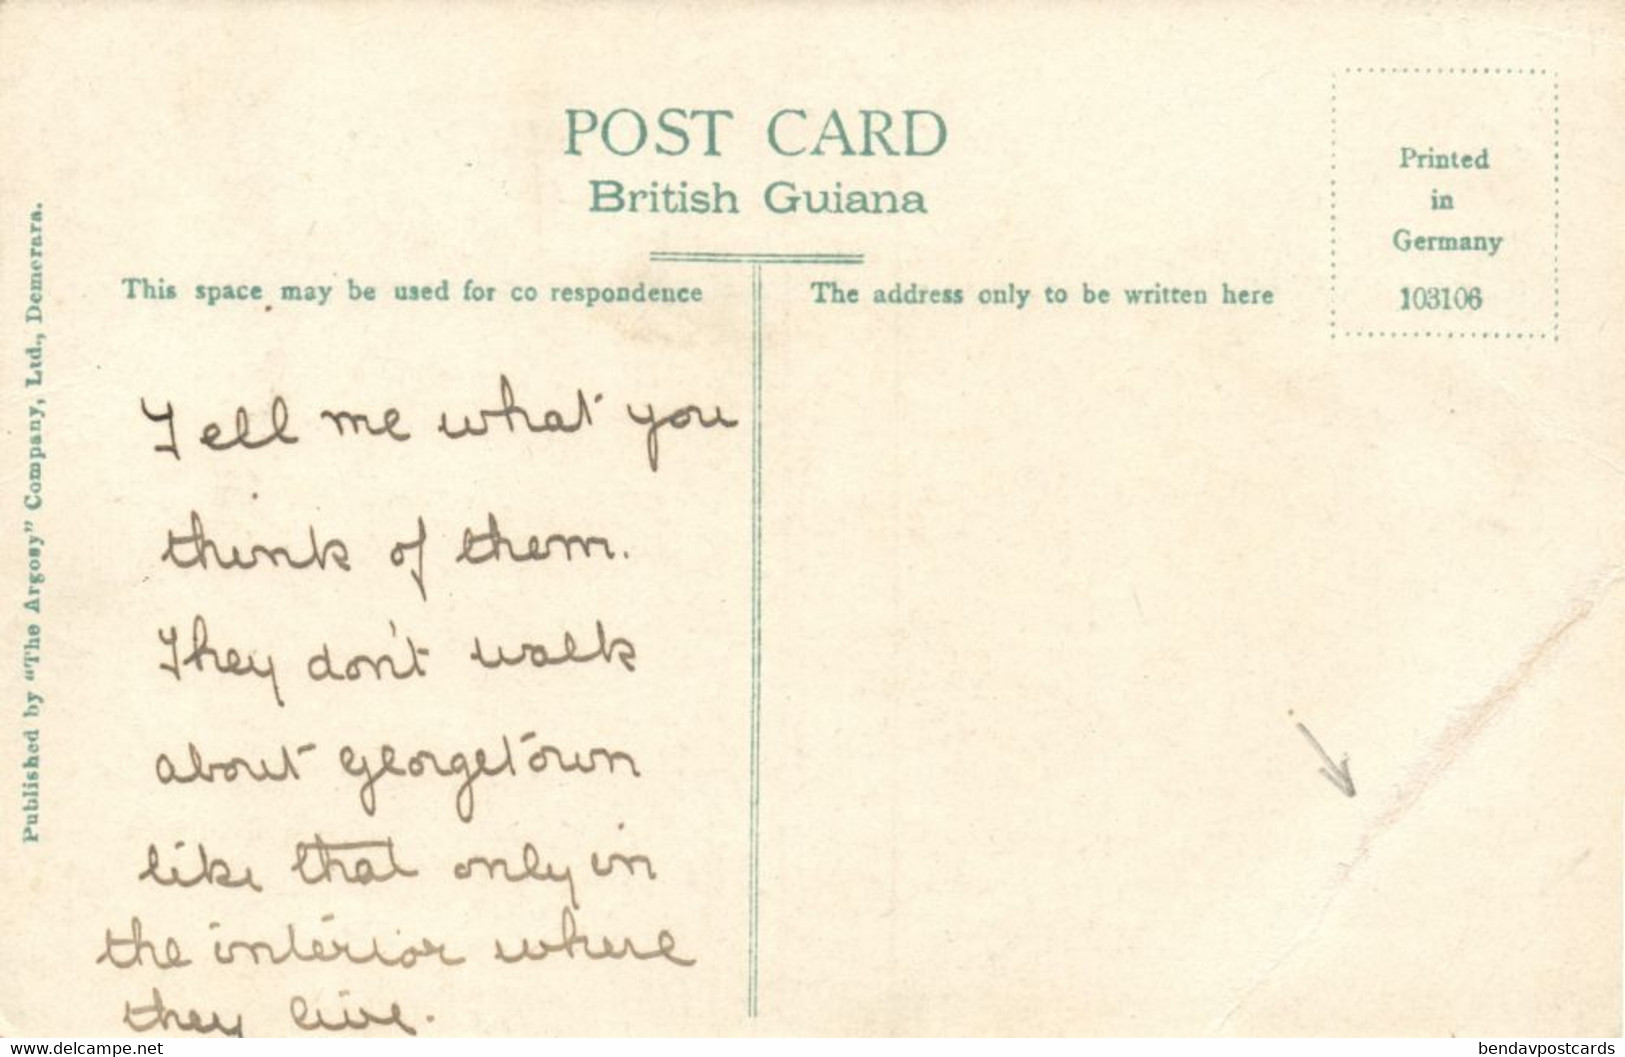 POST CARD
British Guiana
Printed
in
Germany
103106
This space may be used for co respondence
The address only to be written here
Published by "The Argosy" Company, Ltd., Demerara.
Tell me what you
think of them.
They don't walk
about Georgetown
like that only in
the interior where
they live.
www.delcampe.net
bendavpostcards